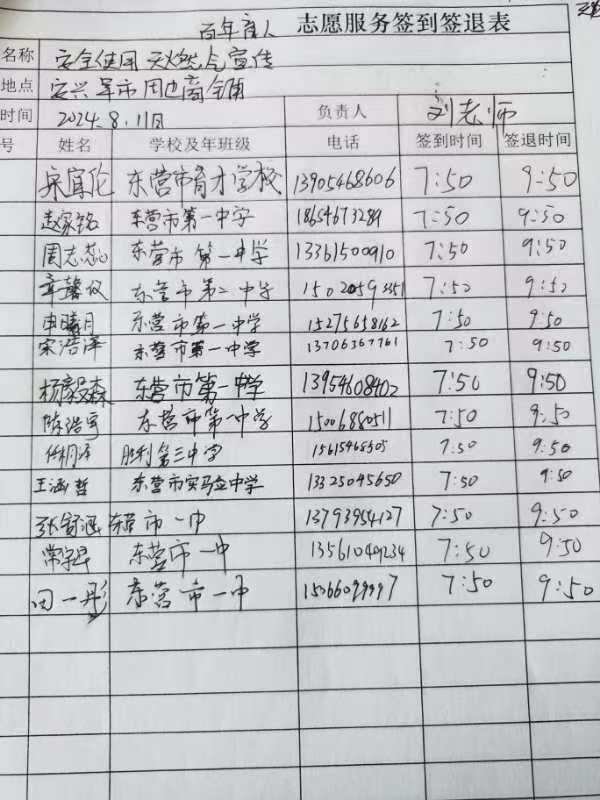 百年育人 志愿服务签到签退表
名称 安全使用天燃气宣传
地点 安兴早市周边商铺
时间 2024.8.11日 负责人 刘老师
号 姓名 学校及年班级 电话 签到时间 签退时间
宋宜伦 东营市育才学校 13905468606 7:50 9:50
赵家铭 东营市第一中学 18654673289 7:50 9:50
周志 东营市第一中学 13361500910 7:50 9:50
章馨仪 东营市第二中学 7:50 9:50
申曦月 东营市第一中学 15275658162 7:50 9:50
宋浩泽 东营市第一中学 13706367761 7:50 9:50
杨毅森 东营市第一中学 13954608402 7:50 9:50
陈浩宇 东营市第一中学 15006880511 7:50 9:50
胜利第三中学 15615468505 7:50 9:50
王涵哲 东营市实验中学 13325045650 7:50 9:50
张舒涵 东营市一中 13793954127 7:50 9:50
常宇早 东营市一中 13561049234 7:50 9:50
田一彤 东营市一中 7:50 9:50